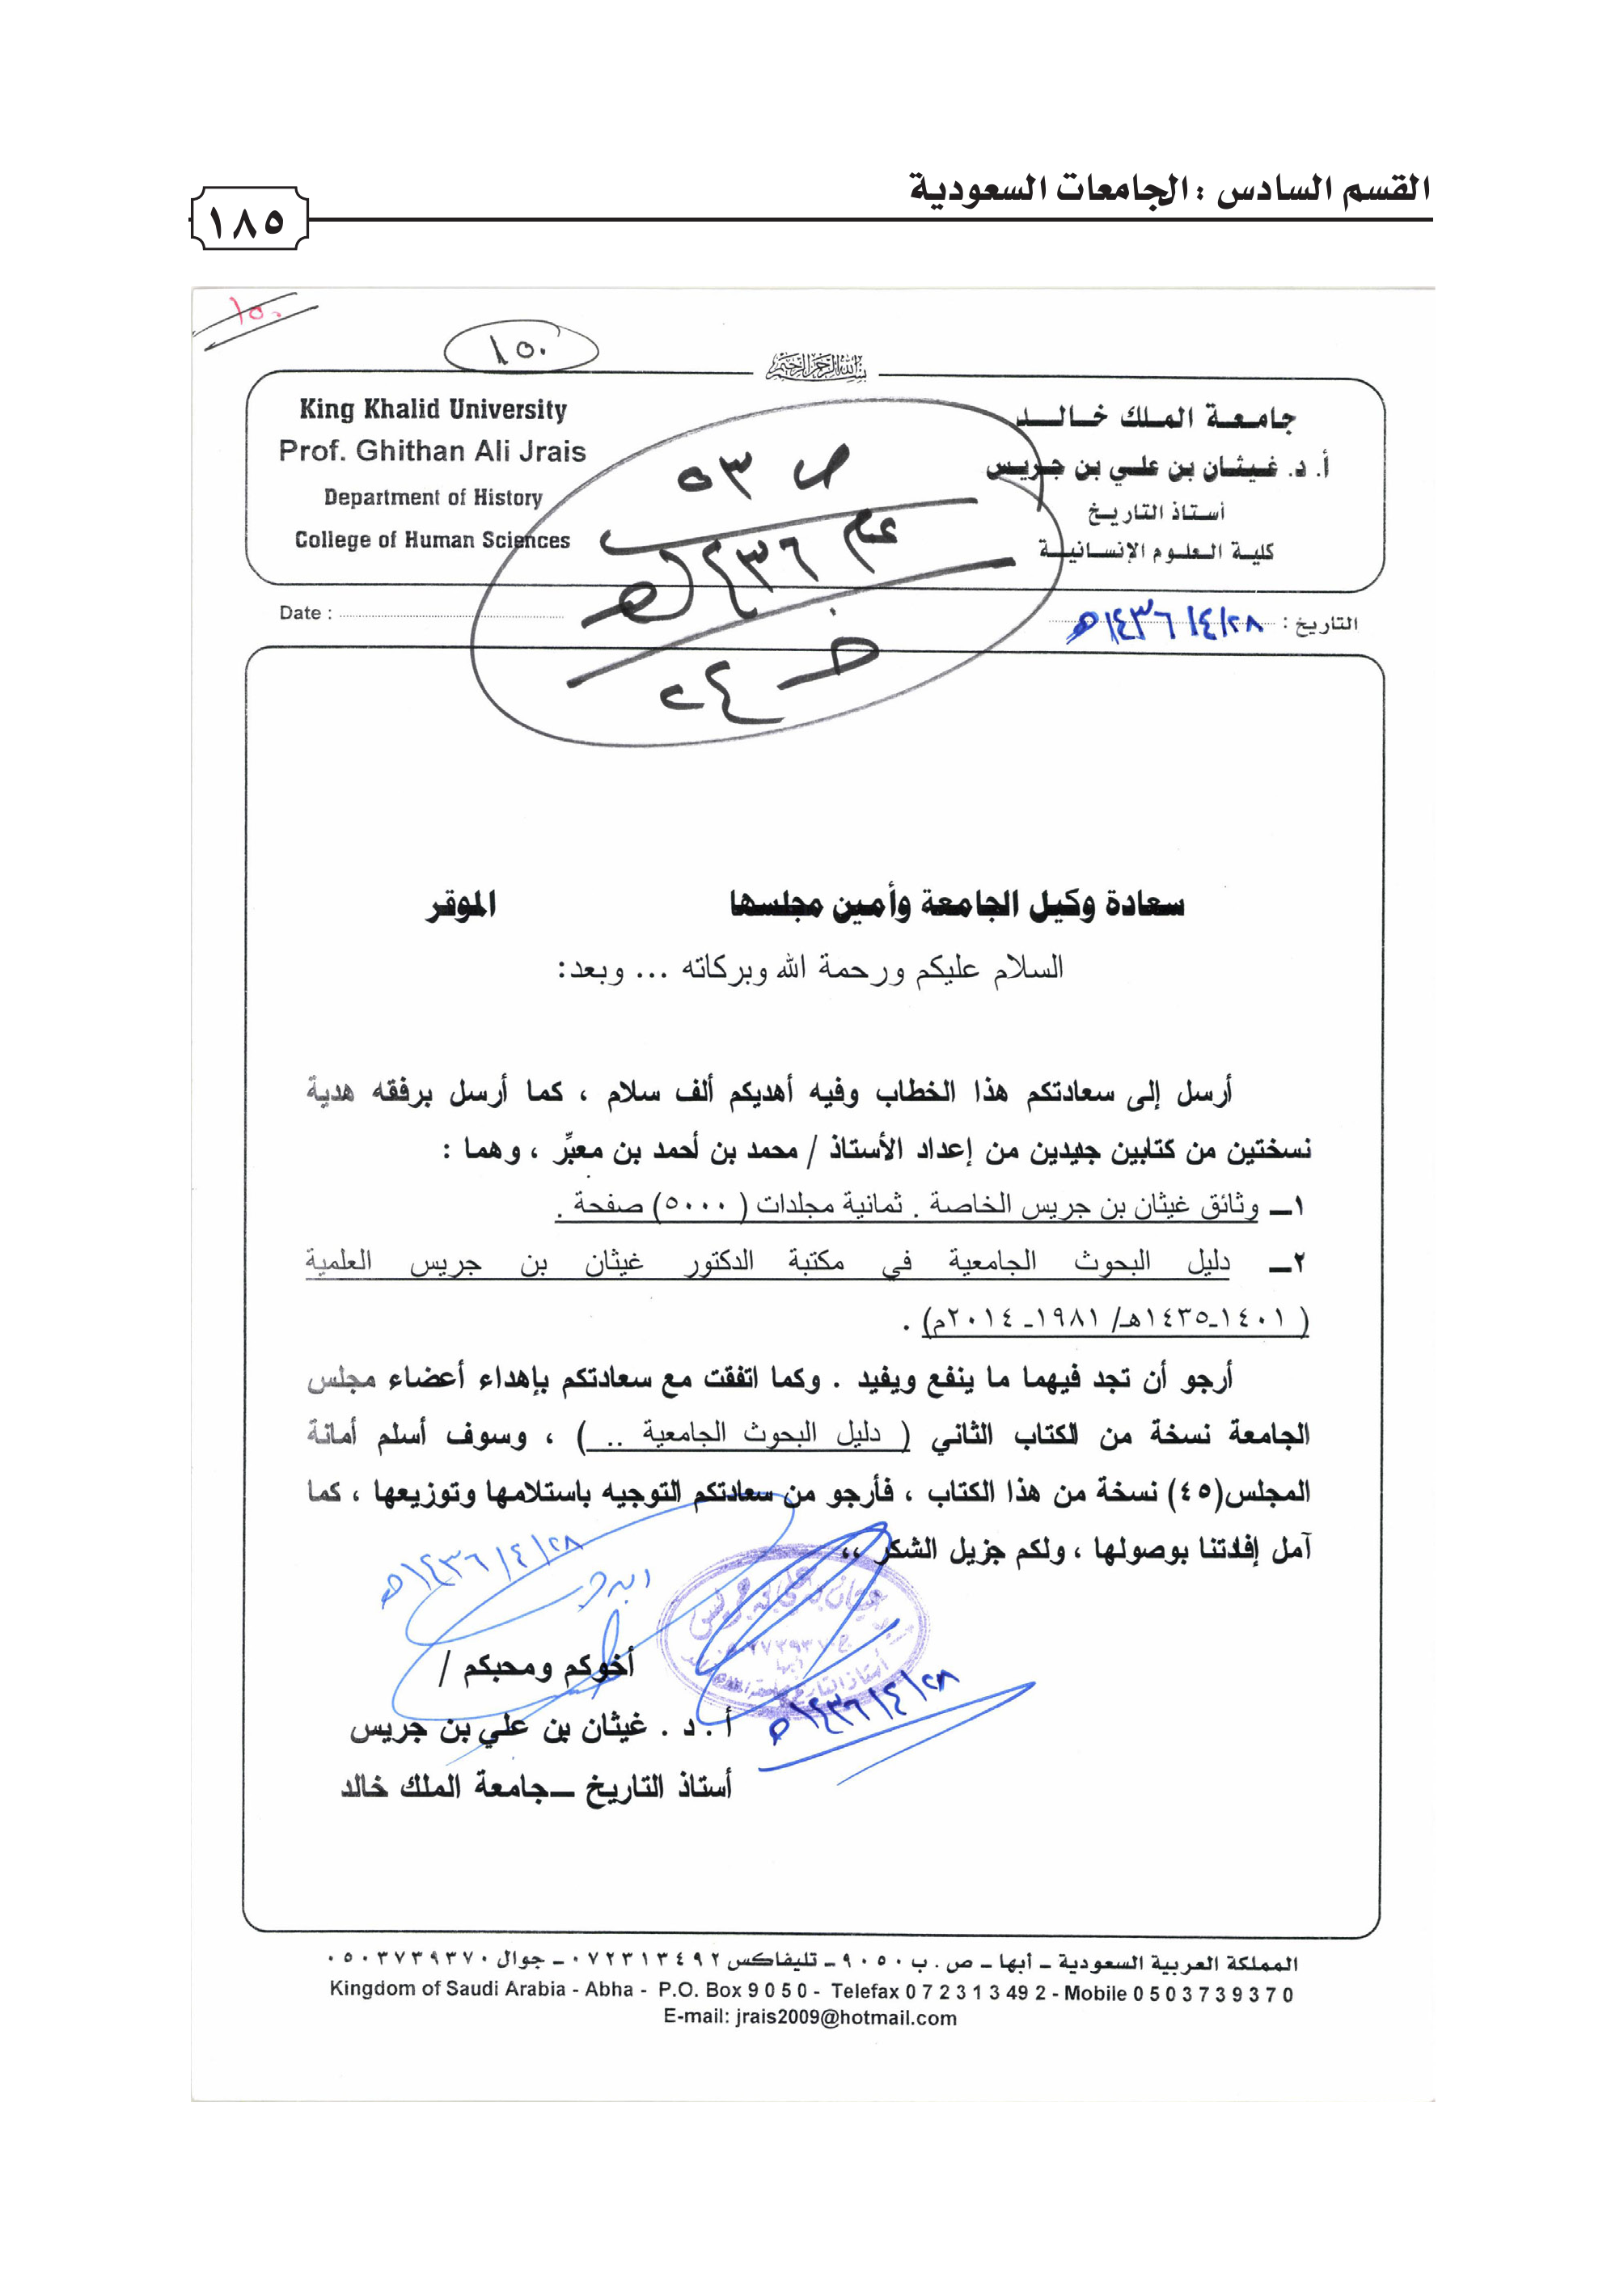 القسم السادس : الجامعات السعودية
١٨٥
١٥٠
١٥٠
بسم الله الرحمن الرحيم
جامعة الملك خالد
أ. د. غيثان بن علي بن جريس
أستاذ التاريخ
كلية العلوم الإنسانية
King Khalid University
Prof. Ghithan Ali Jrais
Department of History
College of Human Sciences
ص ٥٣
عام ١٤٣٦هـ
التاريخ : ١٤٣٦/٤/٢٨هـ
Date :
سعادة وكيل الجامعة وأمين مجلسها الموقر
السلام عليكم ورحمة الله وبركاته ... وبعد:
أرسل إلى سعادتكم هذا الخطاب وفيه أهديكم ألف سلام ، كما أرسل برفقه هدية
نسختين من كتابين جيدين من إعداد الأستاذ / محمد بن أحمد بن معبِّر ، وهما :
١ــ وثائق غيثان بن جريس الخاصة . ثمانية مجلدات ( ٥٠٠٠) صفحة .
٢ــ دليل البحوث الجامعية في مكتبة الدكتور غيثان بن جريس العلمية
( ١٤٠١ـ١٤٣٥هـ/ ١٩٨١ـ ٢٠١٤م) .
أرجو أن تجد فيهما ما ينفع ويفيد . وكما اتفقت مع سعادتكم بإهداء أعضاء مجلس
الجامعة نسخة من الكتاب الثاني ( دليل البحوث الجامعية .. ) ، وسوف أسلم أمانة
المجلس(٤٥) نسخة من هذا الكتاب ، فأرجو من سعادتكم التوجيه باستلامها وتوزيعها ، كما
آمل إفادتنا بوصولها ، ولكم جزيل الشكر ،،
١٤٣٦/٤/٢٨هـ
أخوكم ومحبكم /
١٤٣٦/٤/٢٨هـ
أ . د . غيثان بن علي بن جريس
أستاذ التاريخ ــجامعة الملك خالد
المملكة العربية السعودية ـ أبها ـ ص . ب ٩٠٥٠ ـ تليفاكس ٠٧٢٣١٣٤٩٢ ـ جوال ٠٥٠٣٧٣٩٣٧٠
Kingdom of Saudi Arabia - Abha - P.O. Box 9 0 5 0 - Telefax 0 7 2 3 1 3 49 2 - Mobile 0 5 0 3 7 3 9 3 7 0
E-mail: jrais2009@hotmail.com